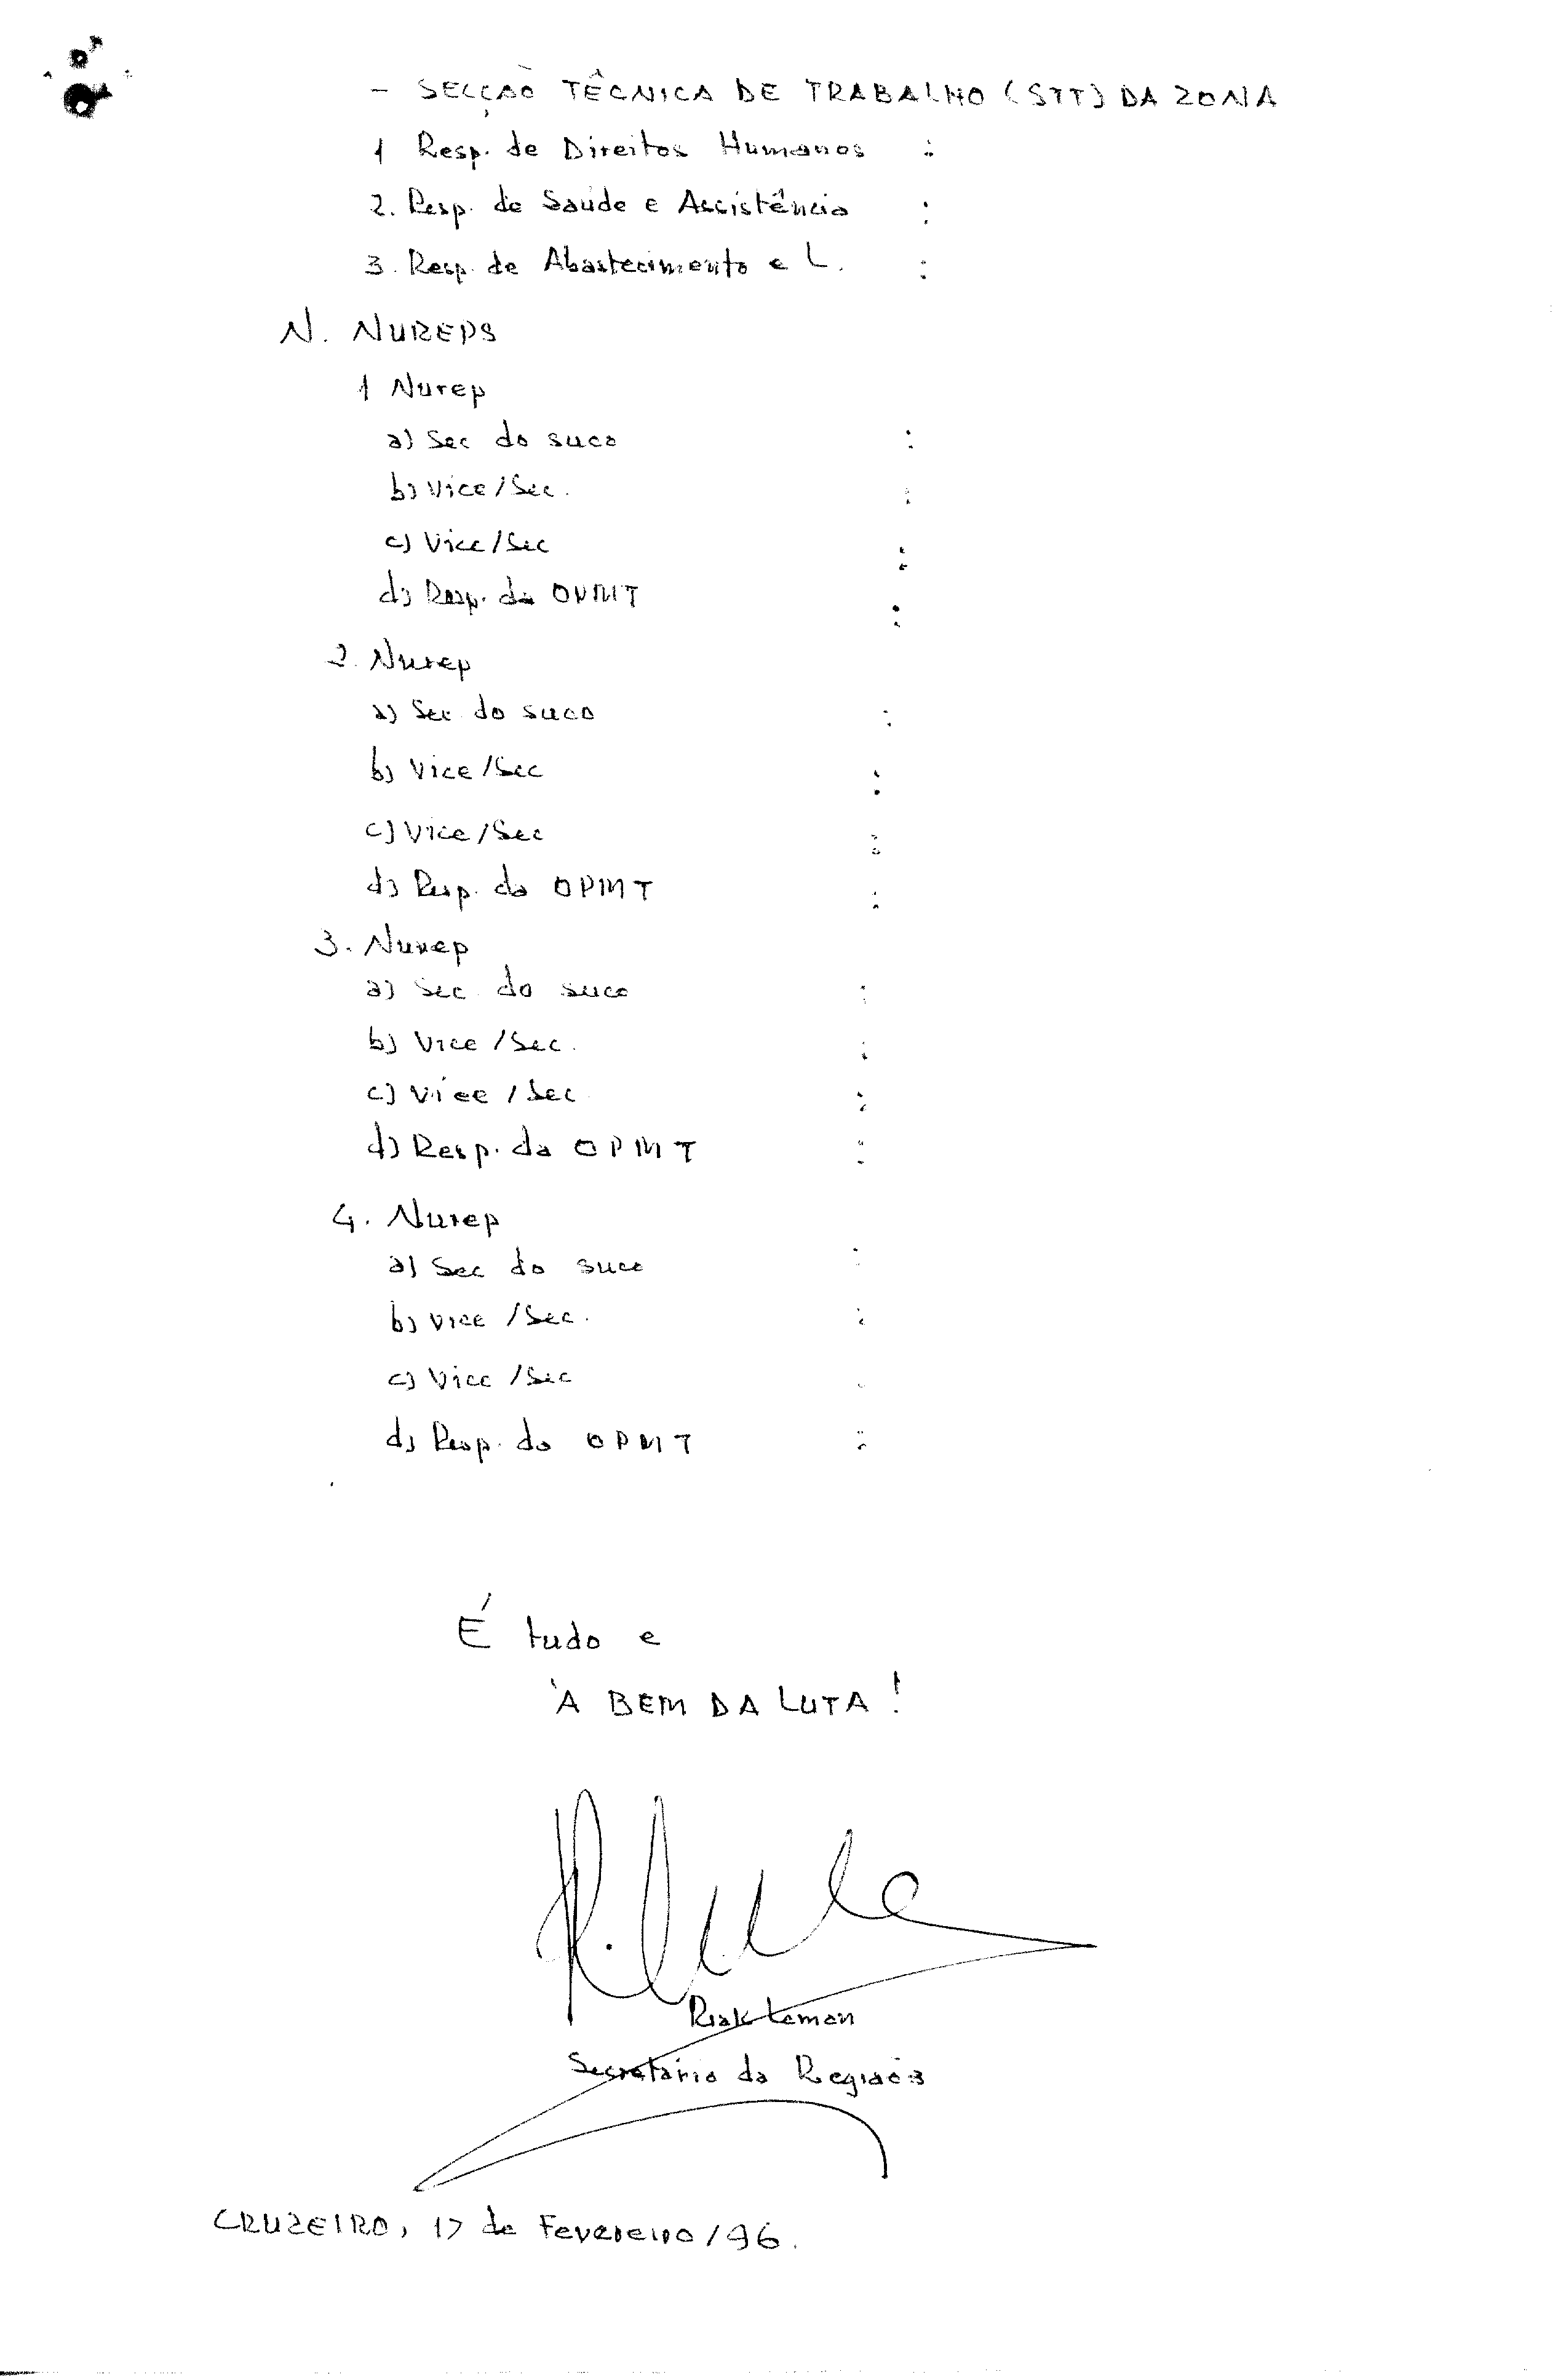 - SECÇÃO TÊCNICA DE TRABALHO (STT) DA ZONA
1 Resp. de Direitos Humanos :
2. Resp. de Saúde e Assistência :
3. Resp. de Abastecimento e L. :
N. NUREPS
1 Nurep
a) Sec do suco :
b) Vice/Sec. :
c) Vice/Sec :
d) Resp. da OPMT :
2. Nurep
a) Sec. do suco :
b) Vice/Sec :
c) Vice/Sec :
d) Resp. da OPMT :
3. Nurep
a) Sec. do suco :
b) Vice/Sec. :
c) Vice/Sec :
d) Resp. da OPMT :
4. Nurep
a) Sec do suco :
b) Vice/Sec. :
c) Vice/Sec :
d) Resp. da OPMT :
É tudo e
À BEM DA LUTA!
Riak Leman
Secretário da Região 3
CRUZEIRO, 17 de Fevereiro/96.